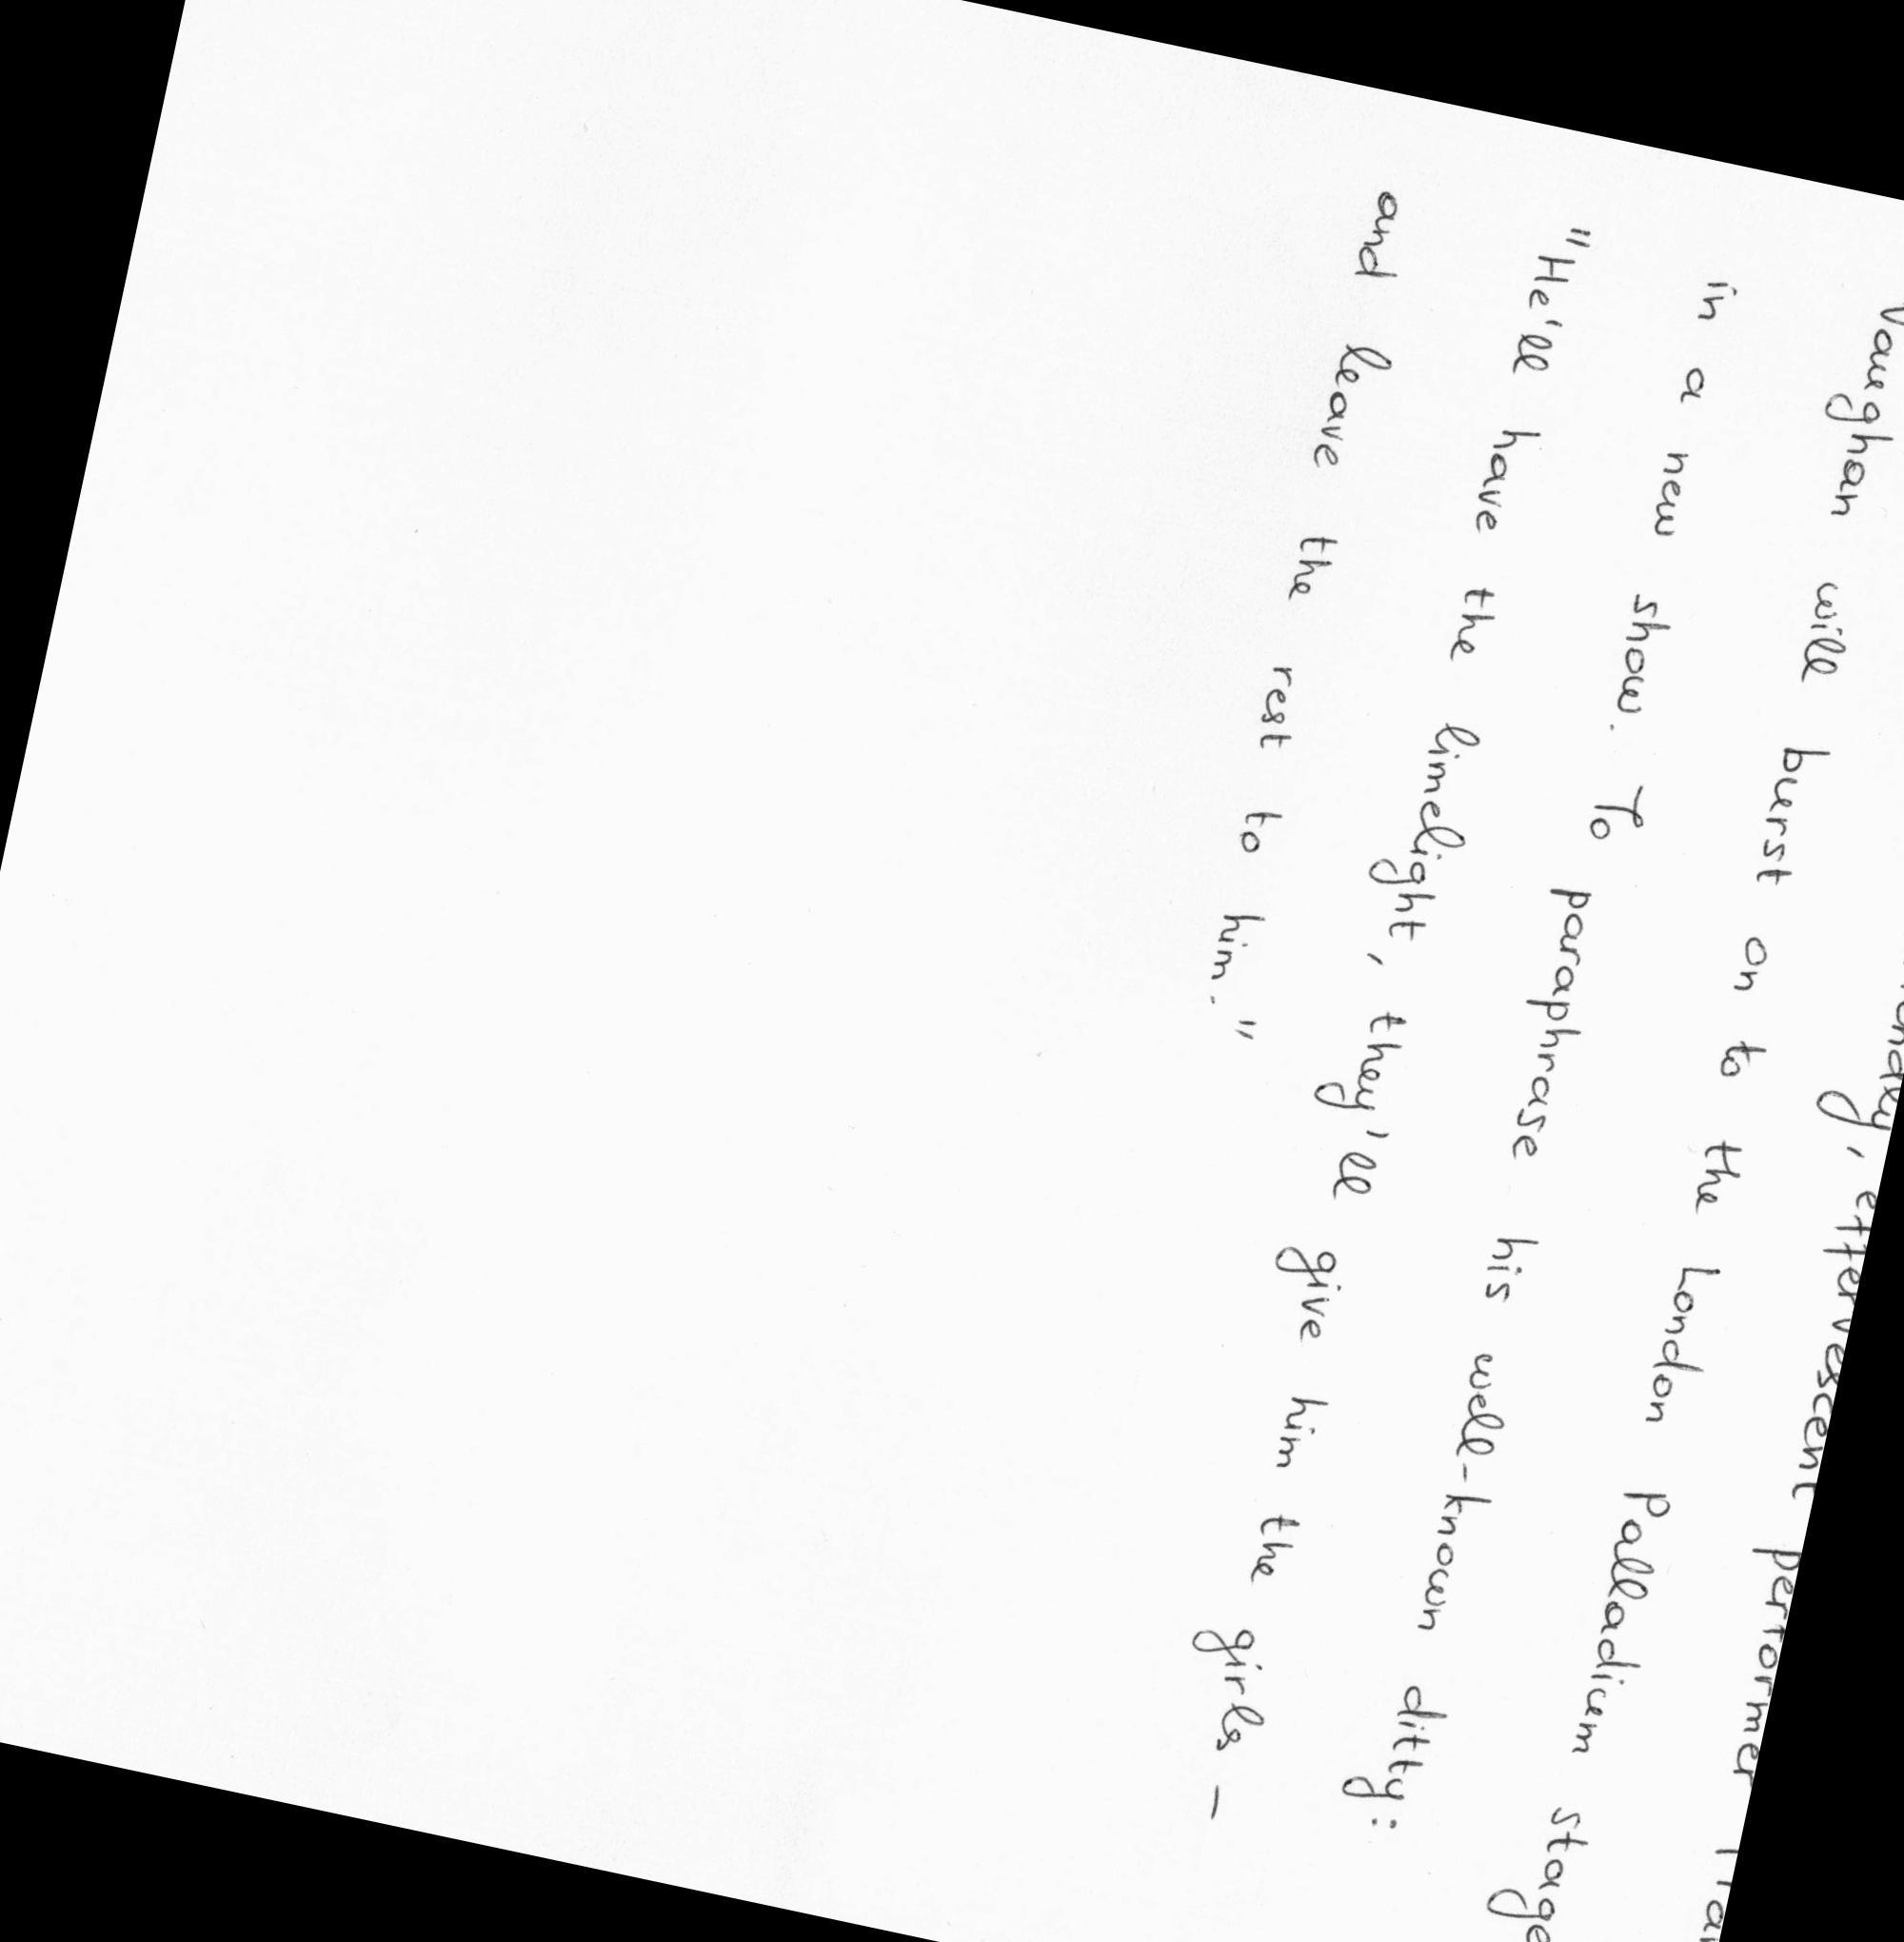 effervescent performer
Vaughan will burst on to the London Palladium stage
in a new show. To paraphrase his well-known ditty:
"He'll have the limelight, they'll give him the girls -
and leave the rest to him."